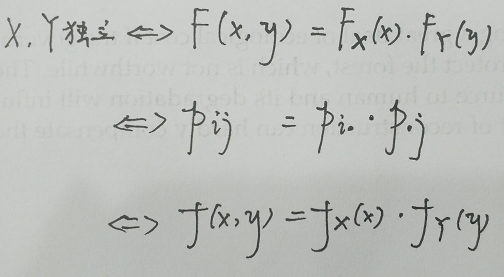 X, Y独立 <=> F(x, y) = F_X(x) · F_Y(y)
<=> p_{ij} = p_{i·} · p_{·j}
<=> f(x, y) = f_X(x) · f_Y(y)